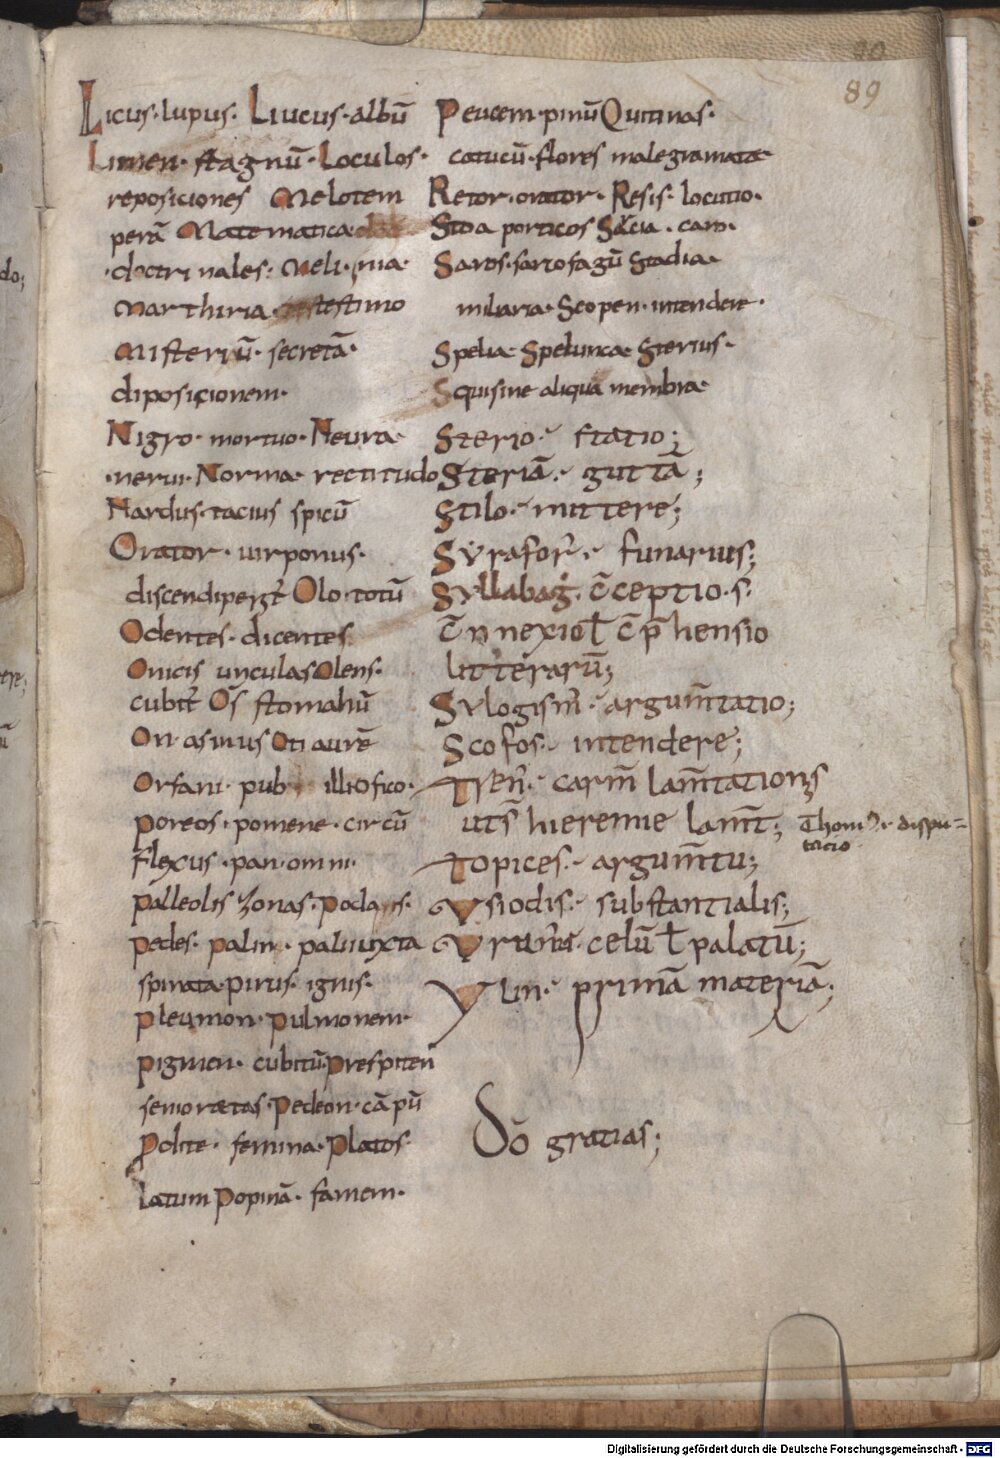 90
89
Licus · lupus · Liucus · albū
Limen · stagnū · Loculos ·
reposiciones Melotem
perā Matematica
doctrinales : Meli · mia ·
Marthiria · testimo
Misteriū · secretā ·
diposicionem ·
Nigro · mortuo · Neura
· nerui · Norma rectitudo
Nardus · tacius spicū
Orator · uirponus ·
discendiperit̄ Olo · totū
Odentes · dicentes
Onicis unculas Olens ·
cubit̄ Os̄ stomahū
On · asinus Oti aurē
Orfani · pub illi Ofico ·
Poreos · pomene · circū
flexus · pan · omni ·
Palleolis zonas · Podaris ·
pedes · palin · paliuixta
spinata · Pirus · ignis ·
Pleumon · Pulmonem ·
Pigmen · cubitū · Prespiteri
senioraetas · Pedeon · cāpū
Polite · femina · Platos ·
latum Popinā · famem ·
Peucem · pinū Quitinas ·
catucū · flores malegramata
Retor · orator · Resis · locutio ·
Stoa porticos Sarcia · caro ·
Saros · sarcofagū Stadia
miliaria · Scopen · intendere ·
Spelia Spelunca Sterius ·
Squisine aliqua membra
Sterio · statio ;
Steriā · guttā ;
Stilo · mittere ;
Syrafor̄ · funarius ;
Syllabaḡ · c̄ceptio · s ·
c̄nnexio ł c̄p̄hensio
litterarū ;
Sylogism̄ · argum̄tatio ;
Scofos · intendere ;
Tren̄ · carm̄ lam̄tationis
uts̄ hieremie lam̄t ;
Thom · dispu=
tacio
Topices · argum̄tu ;
Usiodis · substantialis ;
Uran̄ · celū ł palatū ;
Ylin · primā materiā ;
Dō gratias ;
Digitalisierung gefördert durch die Deutsche Forschungsgemeinschaft · DFG